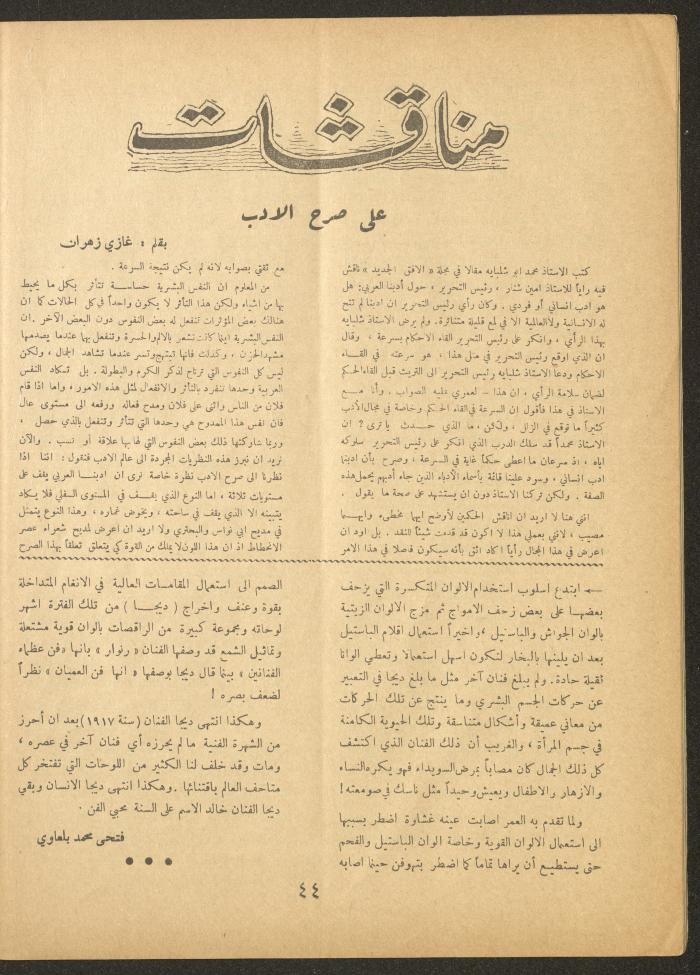 مناقشات
على صرح الادب
بقلم : غازي زهران
كتب الاستاذ محمد ابو شلبايه مقالا في مجلة «الافق الجديد» ناقش
فيه رأياً للاستاذ امين شنار ، رئيس التحرير ، حول أدبنا العربي: هل
هو ادب انساني أو فردي . وكان رأي رئيس التحرير ان ادبنا لم تتح
له الانسانية ولاالعالمية الا في لمع قليلة متناثرة. ولم يرض الاستاذ شلبايه
بهذا الرأي ، وانكر على رئيس التحرير القاء الاحكام بسرعة ، وقال
ان الذي اوقع رئيس التحرير في مثل هذا ، هو سرعته في القـاء
الاحكام ودعا الاستاذ شلبايه رئيس التحرير الى التريث قبل القاءالحكم
لضمان سلامة الرأي ، ان هذا – لعمري عليه الصواب . وأنا مـع
الاستاذ في هذا فأقول ان السرعة في القاء الحكم وخاصة في مجال الأدب
كثيراً ما توقع في الزلل ، ولكن ، ما الذي حـدث يا ترى ? ان
الاستاذ محمداً قد سلك الدرب الذي انكر على رئيس التحرير سلوكه
اياه ، اذ سرعان ما اعطى حكماً غاية في السرعة ، وصرح بأن ادبنا
ادب انساني ، وسود علينا قائمة بأسماء الأدباء الذين جاء أدبهم يحمل هذه
الصفة . ولكن تركنا الاستاذ دون ان يستشهد على صحة ما يقول .
انني هنا لا اريد ان اناقش الحكمين لأوضح ايهما مخطىء وايهـما
مصيب ، لانني بعملي هذا لا اكون قد قدمت شيئاً للنقد . بل اود ان
اعرض في هذا المجال رأياً اكاد اثق بأنه سيكون فاصلا في هذا الامر
مع ثقتي بصوابه لانه لم يكن نتيجة السرعة .
من المعلوم ان النفس البشرية حساسـة تتأثر بكل ما يحيط
بها من اشياء ولكن هذا التأثر لا يكون واحداً في كل الحالات كما ان
هنالك بعض المؤثرات تنفعل له بعض النفوس دون البعض الآخر .ان
النفس البشرية اينما كانت تشعر بالالم والحسرة وتنفعل بها عندما يصدمها
مشهدالحزن ، وكذلك فانها تبتهج وتسر عندما تشاهد الجمال ، ولكن
ليس كل النفوس التي ترتاح لذكر الكرم والبطولة . بل تسكاد النفس
العربية وحدها تنفرد بالتأثر والانفعال لمثل هذه الامور ، واما اذا قام
فلان من الناس واثنى على فلان ومدح فعاله ورفعه الى مستوى عال
فان نفس هذا الممدوح هي وحدها التي تتأثر وتنفعل بالذي حصل ،
وربما شاركتها ذلك بعض النفوس التي لها بها علاقة أو نسب . والآن
نريد ان نبرز هذه النظريات المجردة الى عالم الادب فنقول : اننا اذا
نظرنا الى صرح الادب نظرة خاصة نرى ان ادبنـا العربي يقف على
مستويات ثلاثة ، اما النوع الذي يقـف في المستوى السفلي فلا يكاد
يتبينه الا الذي يقف في ساحته ، ويخوض غماره ، وهذا النوع يتمثل
في مديح ابي نواس والبحتري ولا اريد ان اعرض لمديح شعراء عصر
الانحطاط اذ ان هذا اللون لا يملك من القوة كي يتعلق تعلقاً بهذا الصرح
← ابتدع اسلوب استخدام الالوان المتكسرة التي يزحف
بعضهـا على بعض زحف الامواج ثم مزج الالوان الزيتية
بالوان الجواش والباستيل ، واخيراً استعمال اقلام الباستيل
بعد ان يلينها بالبخار لتكون اسهل استعمالا وتعطي الوانا
ثقيلة حادة. ولم يبلغ فنان آخر مثل ما بلغ ديجا في التعبير
عن حركات الجسم البشري وما ينتج عن تلك الحركات
من معاني عميقة وأشكال متناسقة وتلك الحيوية الكامنة
في جسم المرأة ، والغريب أن ذلك الفنان الذي اكتشف
كل ذلك الجمال كان مصاباً بمرض السويداء فهو يكره النساء
والازهار والاطفال ويعيش وحيداً مثل ناسك في صومعته !
ولما تقدم به العمر اصابت عينه غشاوة اضطر بسببها
الى استعمال الالوان القوية وخاصة الوان الباستيل والفحم
حتى يستطيع أن يراها تماماً كما اضطر بتهوفن حينما اصابه
الصمم الى استعمال المقامات العالية في الانغام المتداخلة
بقوة وعنف واخراج ( ديجـا ) من تلك الفترة اشهر
لوحاته ومجموعة كبيرة من الراقصات بالوان قوية مشتعلة
وتماثيل الشمع قد وصفها الفنان « رنوار » بانها «فن عظماء
الفنانين » بينما قال ديجا بوصفها « انها فن العميان » نظراً
لضعف بصره !
وهكذا انتهى ديجا الفنان (سنة ١٩١٧) بعد ان أحرز
من الشهرة الفنية ما لم يحرزه أي فنان آخر في عصره ،
ومات وقد خلف لنا الكثير من اللوحات التي تفتخر كل
متاحف العالم باقتنائها . وهكذا انتهى ديجا الانسان وبقي
ديجا الفنان خالد الاسم على السنة محبي الفن .
فتحى محمد بلعاوي
٤٤